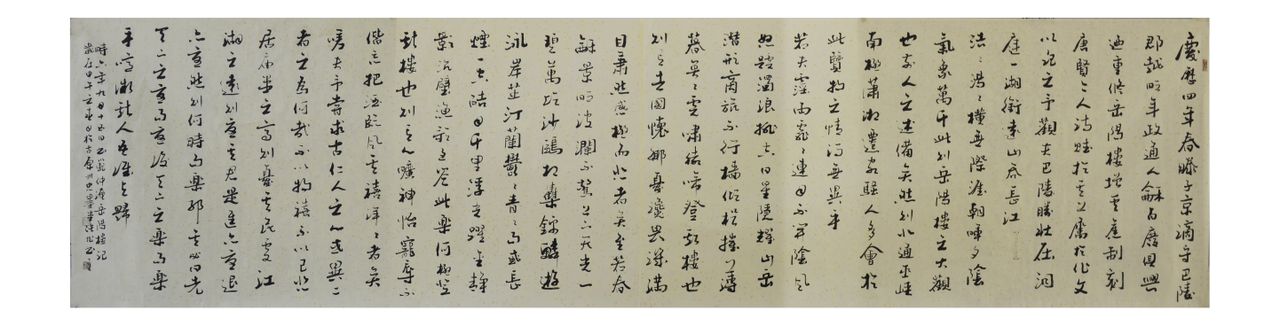 慶曆四年春滕子京謫守巴陵
郡越明年政通人和百廢具興
迺重修岳陽樓增其舊制刻
唐賢今人詩賦於其上屬於作文
以記之予觀夫巴陵勝狀在洞
庭一湖銜遠山吞長江
浩浩湯湯橫無際涯朝暉夕陰
氣象萬千此則岳陽樓之大觀
也前人之述備矣然則北通巫峽
南極瀟湘遷客騷人多會於
此覽物之情得無異乎
若夫霪雨霏々連月不開陰風
怒號濁浪排空日星隱耀山岳
潛形商旅不行檣傾楫摧薄
暮冥々虎嘯猿啼登斯樓也
則有去國懷鄉憂讒畏譏滿
目蕭然感極而悲者矣至若春
和景明波瀾不驚上下天光一
碧萬頃沙鷗翔集錦鱗游
泳岸芷汀蘭鬱々青々而或長
煙一空皓月千里浮光躍金靜
影沉璧漁歌互答此樂何極登
斯樓也則有心曠神怡寵辱
偕忘把酒臨風其禧洋々者矣
嗟夫予嘗求古仁人之心或異二
者之為何哉不以物禧不以己悲
居廟堂之高則憂其民處江
湖之遠則憂其君是進亦憂退
亦憂然則何時而樂耶其必曰先
天下之憂而憂後天下之樂而樂
乎噫微斯人吾誰與歸
時六年九月十五日書范仲淹岳陽樓記
歲在甲午之